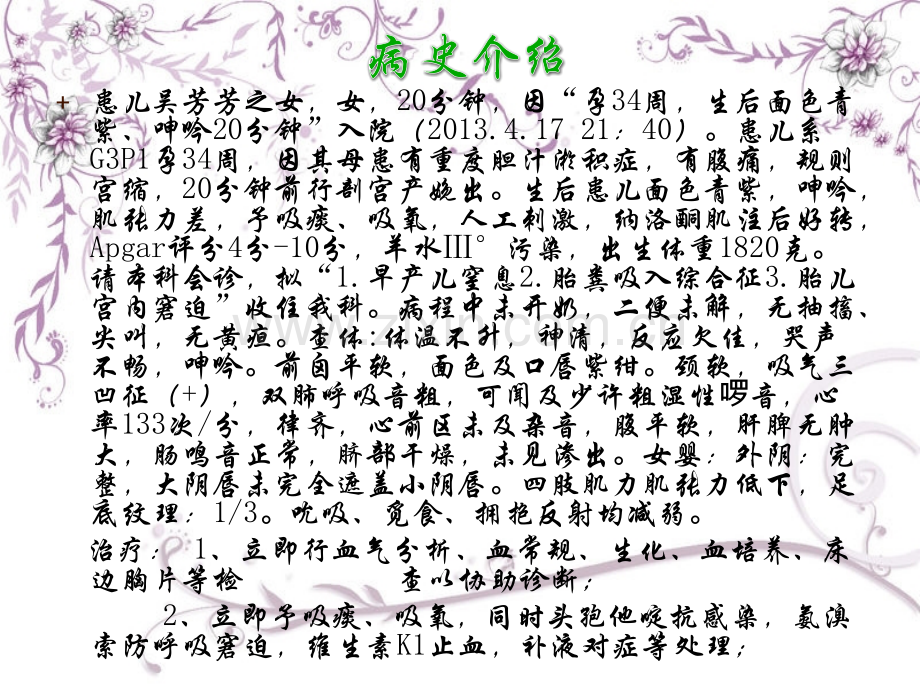 病史介绍
患儿吴芳芳之女，女，20分钟，因“孕34周，生后面色青
紫、呻吟20分钟”入院（2013.4.17 21：40）。患儿系
G3P1孕34周，因其母患有重度胆汁淤积症，有腹痛，规则
宫缩，20分钟前行剖宫产娩出。生后患儿面色青紫，呻吟，
肌张力差，予吸痰、吸氧，人工刺激，纳洛酮肌注后好转，
Apgar评分4分-10分，羊水Ⅲ°污染，出生体重1820克。
请本科会诊，拟“1.早产儿窒息2.胎粪吸入综合征3.胎儿
宫内窘迫”收住我科。病程中未开奶，二便未解，无抽搐、
尖叫，无黄疸。查体:体温不升，神清，反应欠佳，哭声
不畅，呻吟。前囟平软，面色及口唇紫绀。颈软，吸气三
凹征（+），双肺呼吸音粗，可闻及少许粗湿性啰音，心
率133次/分，律齐，心前区未及杂音，腹平软，肝脾无肿
大，肠鸣音正常，脐部干燥，未见渗出。女婴：外阴：完
整，大阴唇未完全遮盖小阴唇。四肢肌力肌张力低下，足
底纹理：1/3。吮吸、觅食、拥抱反射均减弱。
治疗： 1、立即行血气分析、血常规、生化、血培养、床
边胸片等检 查以协助诊断；
2、立即予吸痰、吸氧，同时头孢他啶抗感染，氨溴
索防呼吸窘迫，维生素K1止血，补液对症等处理；